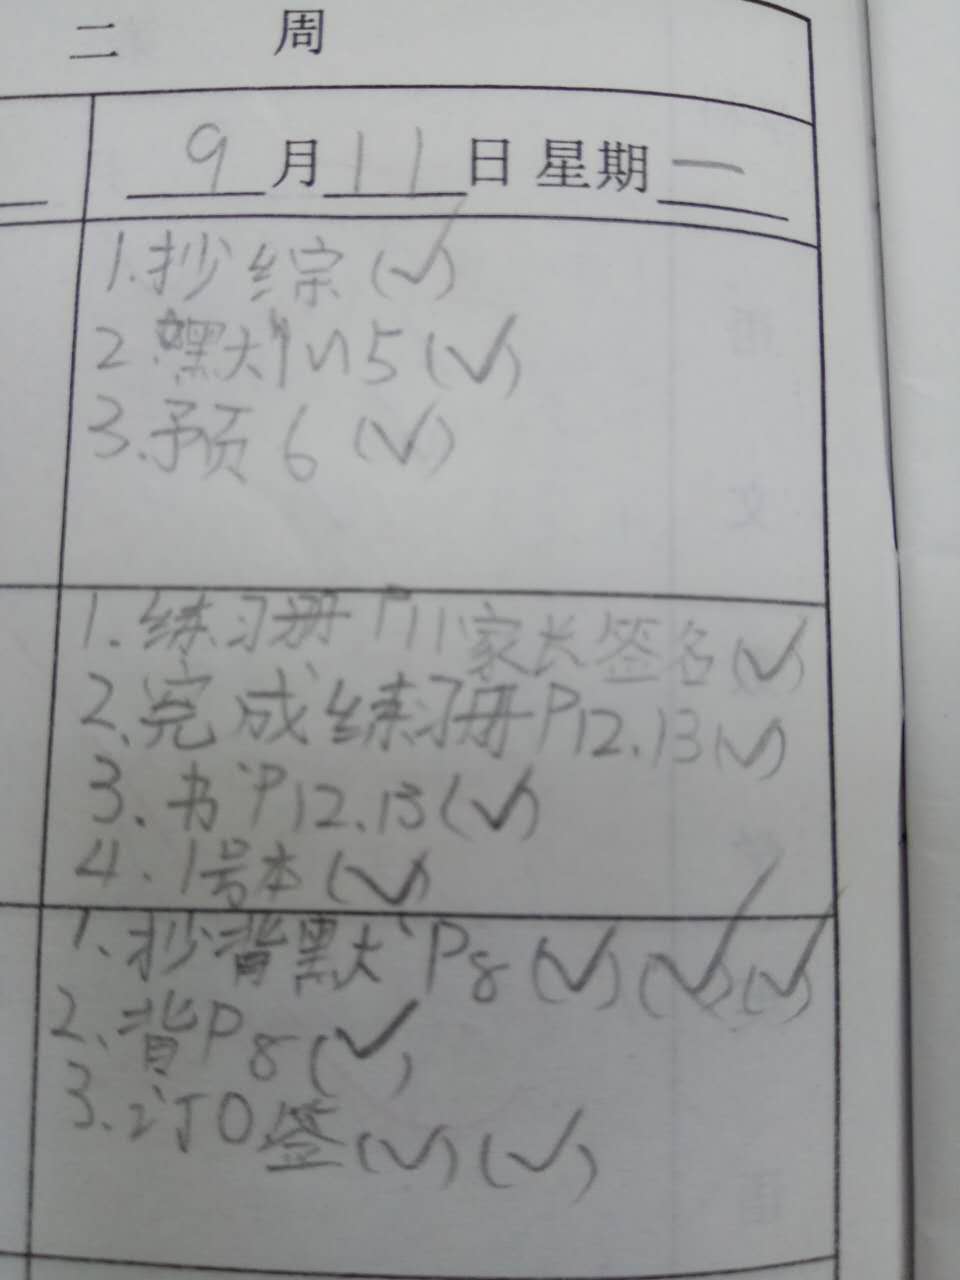 二 周
9月11日 星期一
1.抄综(✓)
2.默词5(✓)
3.预6(✓)
1.练习册P11家长签名(✓)
2.完成练习册P12.13(✓)
3.书P12.13(✓)
4.1号本(✓)
1.抄背默P8(✓)(✓)(✓)
2.背P8(✓)
3.订0签(✓)(✓)